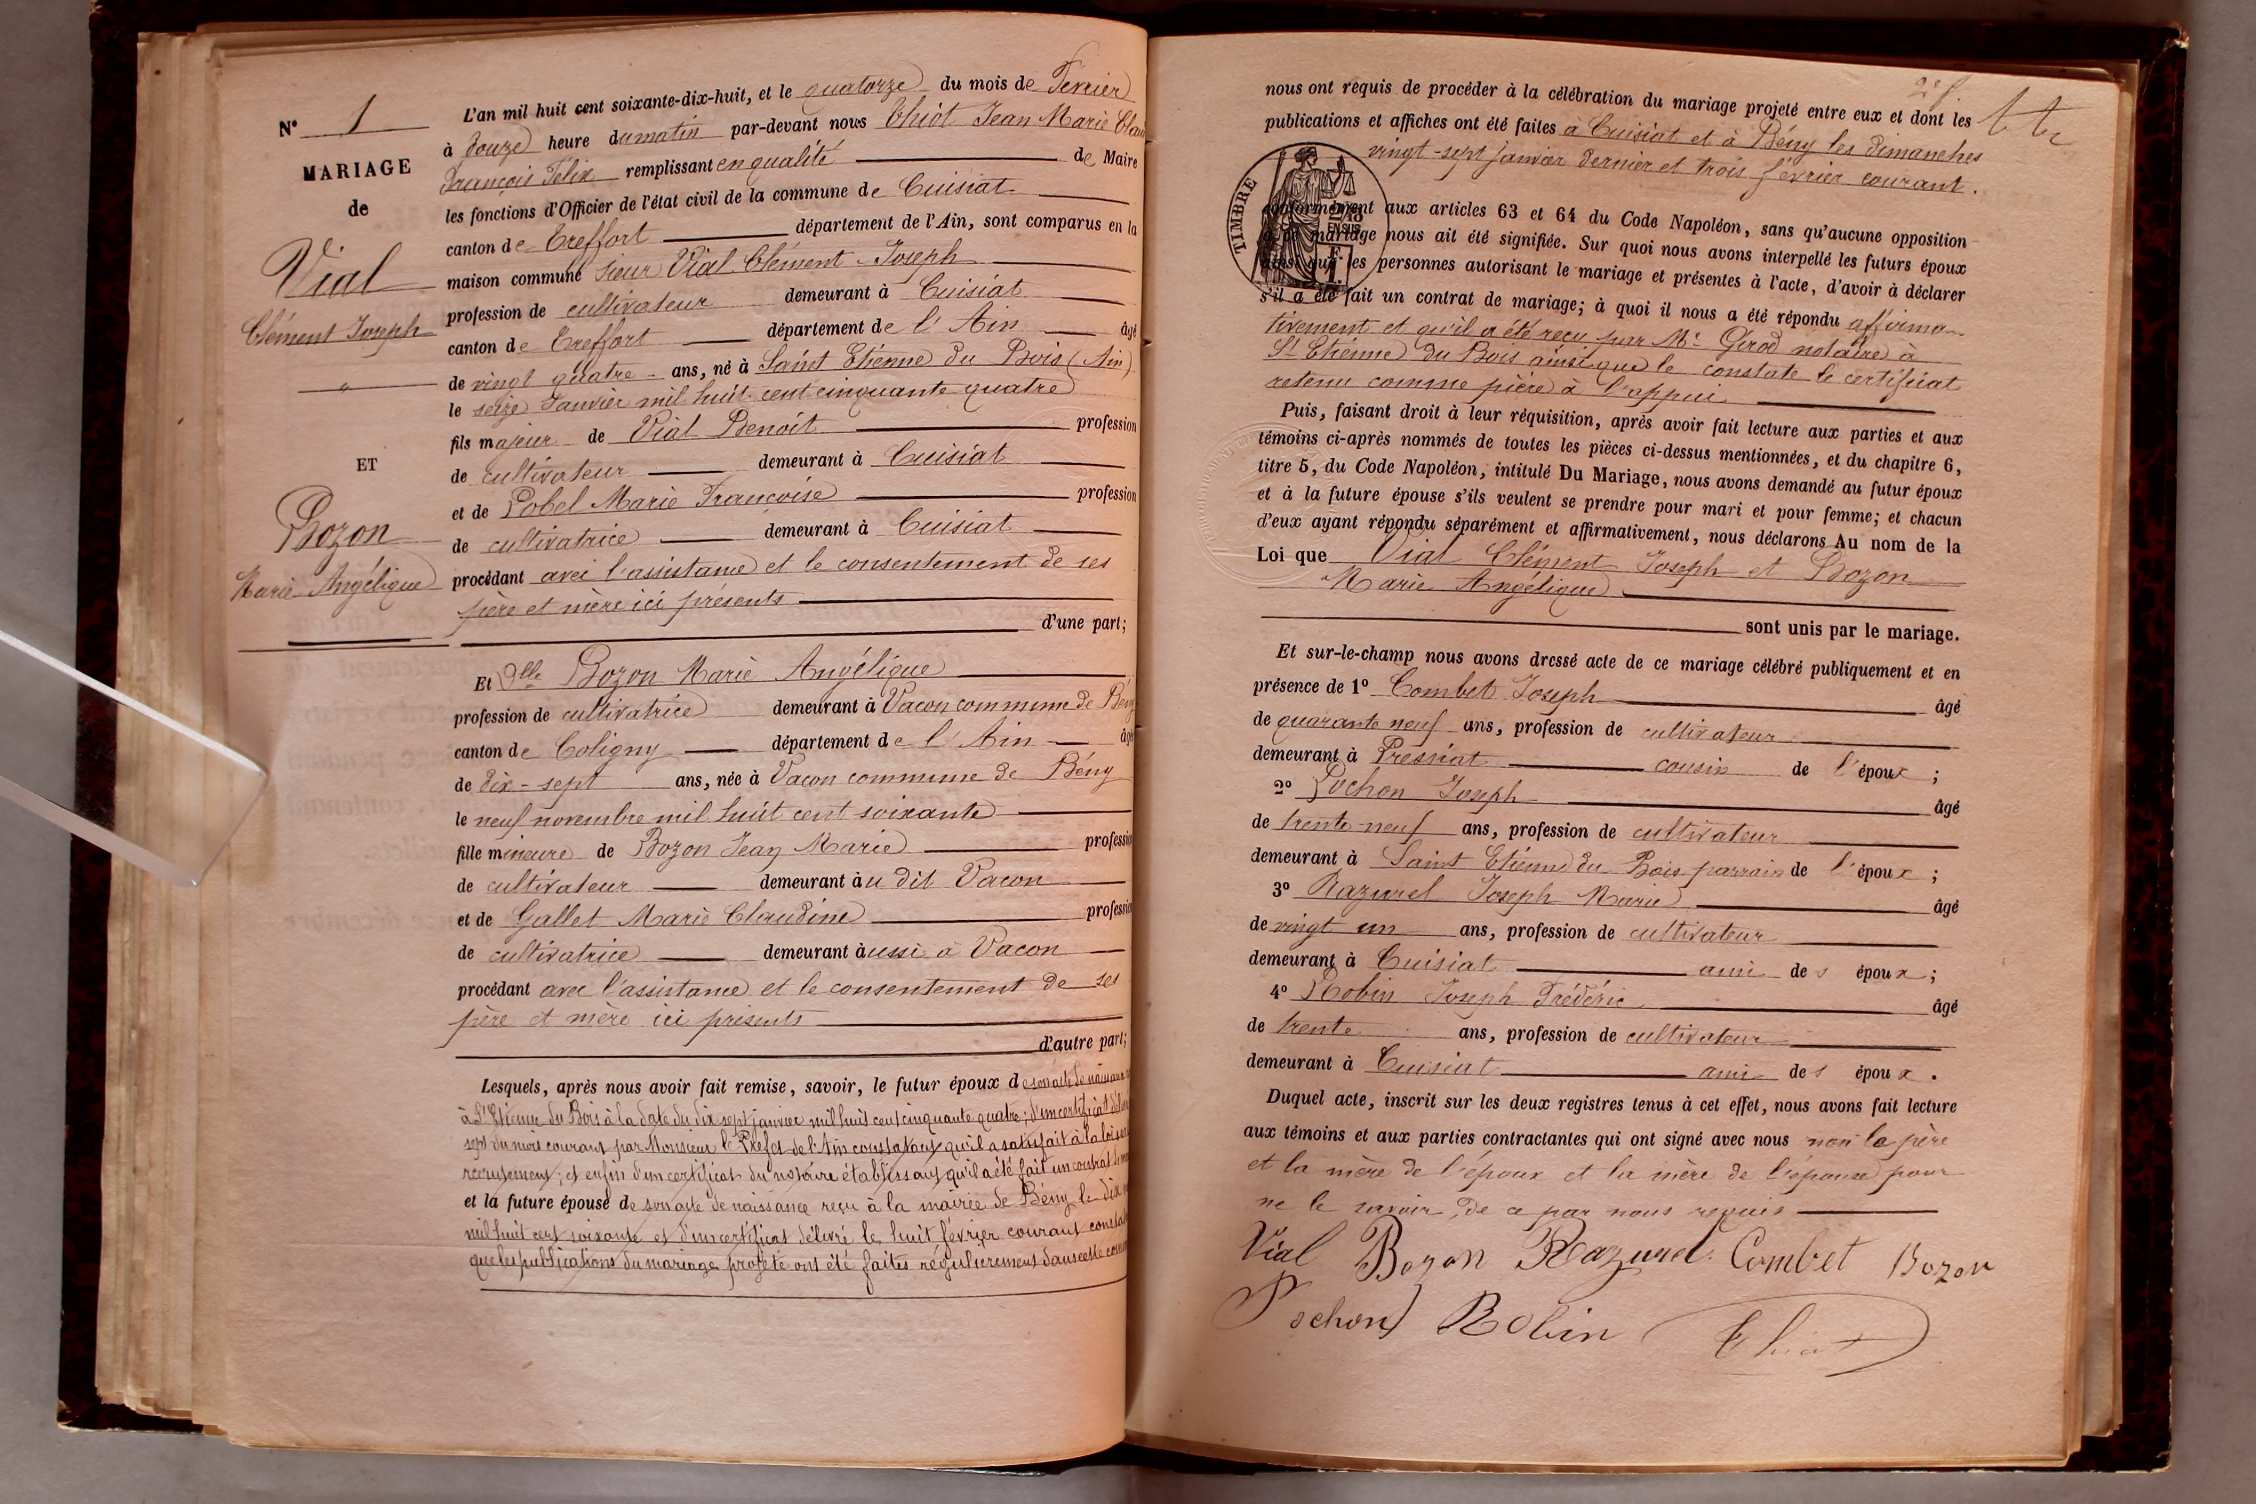 L'an mil huit cent soixante-dix-huit, et le quatorze du mois de Février
N° 1
à douze heure du matin par-devant nous Chiot Jean Marie
MARIAGE
François Félix remplissant en qualité de Maire
de
les fonctions d'Officier de l'état civil de la commune de Cuisiat
canton de Treffort département de l'Ain, sont comparus en la
Vial
maison commune sieur Vial Clément Joseph
profession de cultivateur demeurant à Cuisiat
Clément Joseph
canton de Treffort département de l'Ain âgé
de vingt quatre ans, né à Saint Etienne du Bois (Ain)
le seize Janvier mil huit cent cinquante quatre
fils majeur de Vial Benoit profession
ET
de cultivateur demeurant à Cuisiat
et de Pobel Marie Françoise profession
Bozon
de cultivatrice demeurant à Cuisiat
Marie Angélique
procédant avec l'assistance et le consentement de ses
père et mère ici présents
d'une part;
Et Dlle Bozon Marie Angélique
profession de cultivatrice demeurant à Vacon commune de Bény
canton de Coligny département de l'Ain âgé
de dix-sept ans, née à Vacon commune de Bény
le neuf novembre mil huit cent soixante
fille mineure de Bozon Jean Marie profession
de cultivateur demeurant au dit Vacon
et de Gallet Marie Claudine profession
de cultivatrice demeurant aussi à Vacon
procédant avec l'assistance et le consentement de ses
père et mère ici présents
d'autre part;
Lesquels, après nous avoir fait remise, savoir, le futur époux de son acte de naissance
à St Etienne du Bois à la date du dix sept janvier mil huit cent cinquante quatre; d'un certificat
sept du mois courant par Monsieur le Préfet de l'Ain constatant qu'il a satisfait à la loi
recrutement; et enfin d'un certificat du notaire établissant qu'il a été fait un contrat
et la future épouse de son acte de naissance reçu à la mairie de Bény le dix
mil huit cent soixante et d'un certificat délivré le huit février courant
que les publications du mariage projeté ont été faites régulièrement dans cette
nous ont requis de procéder à la célébration du mariage projeté entre eux et dont les
publications et affiches ont été faites à Cuisiat et à Bény les dimanches
vingt-sept janvier dernier et trois février courant.
TIMBRE
conformément aux articles 63 et 64 du Code Napoléon, sans qu'aucune opposition
à ce mariage nous ait été signifiée. Sur quoi nous avons interpellé les futurs époux
ainsi que les personnes autorisant le mariage et présentes à l'acte, d'avoir à déclarer
s'il a été fait un contrat de mariage; à quoi il nous a été répondu affirma-
tivement et qu'il a été reçu par Me Girod notaire à
St Etienne du Bois ainsi que le constate le certificat
retenu comme pièce à l'appui
Puis, faisant droit à leur réquisition, après avoir fait lecture aux parties et aux
témoins ci-après nommés de toutes les pièces ci-dessus mentionnées, et du chapitre 6,
titre 5, du Code Napoléon, intitulé Du Mariage, nous avons demandé au futur époux
et à la future épouse s'ils veulent se prendre pour mari et pour femme; et chacun
d'eux ayant répondu séparément et affirmativement, nous déclarons Au nom de la
Loi que Vial Clément Joseph et Bozon
Marie Angélique
sont unis par le mariage.
Et sur-le-champ nous avons dressé acte de ce mariage célébré publiquement et en
présence de 1° Combet Joseph âgé
de quarante neuf ans, profession de cultivateur
demeurant à Pressiat cousin de l'époux;
2° Pochon Joseph âgé
de trente-neuf ans, profession de cultivateur
demeurant à Saint Etienne du Bois parrain de l'époux;
3° Razurel Joseph Marie âgé
de vingt un ans, profession de cultivateur
demeurant à Cuisiat ami des époux;
4° Robin Joseph Frédéric âgé
de trente ans, profession de cultivateur
demeurant à Cuisiat ami des époux.
Duquel acte, inscrit sur les deux registres tenus à cet effet, nous avons fait lecture
aux témoins et aux parties contractantes qui ont signé avec nous non le père
et la mère de l'époux et la mère de l'épouse pour
ne le savoir, de ce par nous requis
Vial Bozon Razurel Combet Bozon
Pochon Robin Chiot